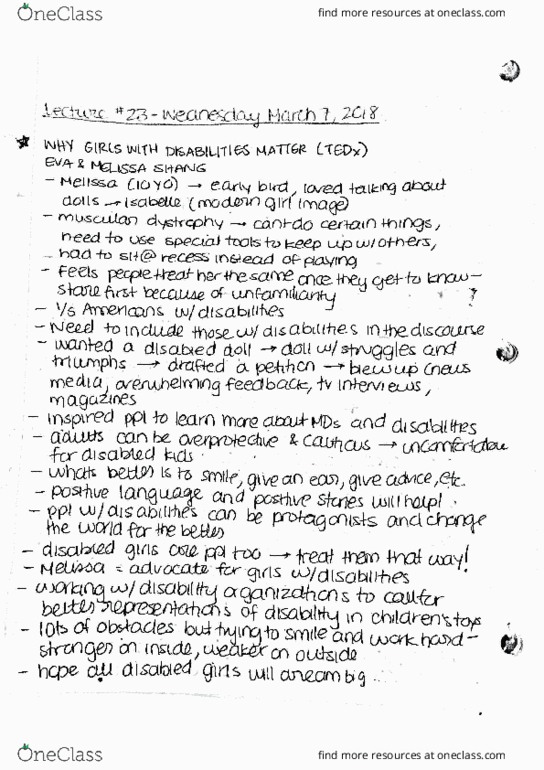 OneClass
find more resources at oneclass.com
Lecture #23 - Wednesday March 7, 2018
WHY GIRLS WITH DISABILITIES MATTER (TEDx)
EVA & MELISSA SHANG
- Melissa (10YO) → early bird, loved talking about
dolls → Isabelle (modern girl image)
- muscular dystrophy → can't do certain things,
need to use special tools to keep up w/others,
- had to sit @ recess instead of playing
- feels people treat her the same once they get to know -
stare first because of unfamiliarity
- 1/5 Americans w/disabilities
- Need to include those w/disabilities in the discourse
- wanted a disabled doll → doll w/struggles and
triumphs → drafted a petition → blew up (news
media, overwhelming feedback, tv interviews,
magazines
- inspired ppl to learn more about MDs and disabilities
- adults can be overprotective & cautious → uncomfortable
for disabled kids
- whats better is to smile, give an ear, give advice, etc.
- positive language and positive stories will help!
- ppl w/disabilities can be protagonists and change
the world for the better
- disabled girls are ppl too → treat them that way!
- Melissa = advocate for girls w/disabilities
- working w/disability organizations to call for
better representations of disability in children's toys
- lots of obstacles but trying to smile and work hard -
stronger on inside, weaker on outside
- hope all disabled girls will dream big..
OneClass
find more resources at oneclass.com